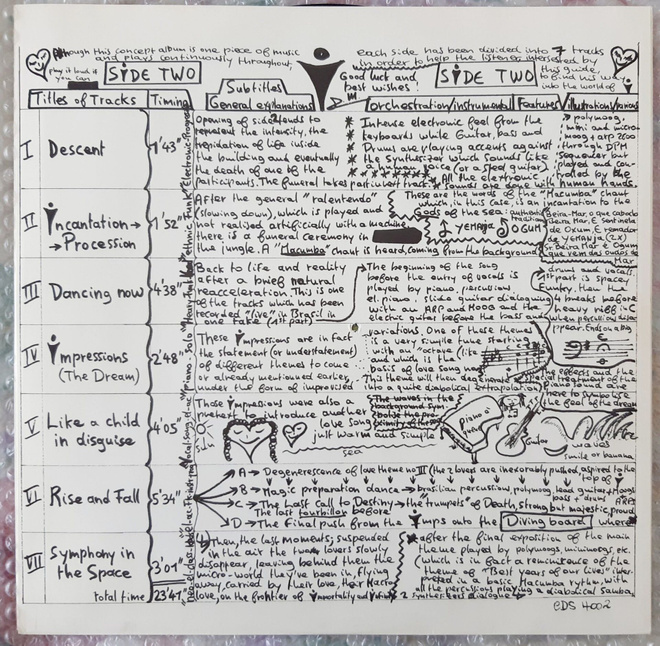 Although this concept album is one piece of music
and plays continuously throughout,
each side has been divided into 7 tracks
in order to help the listener interested by
this guide,
to find his way
into the world of
play it loud if
you can
SIDE TWO
Good luck and
best wishes!
SIDE TWO
Titles of Tracks
Timing
Subtitles
General explanations
orchestration/instrumental
Features
illustration/various
I
Descent
1'43"
Electronic-Progressive
Opening of side tends to
represent the intensity, the
trepidation of life inside
the building and eventually
the death of one of the
participants. The funeral takes part next track.
* Intense electronic feel from the
* keyboards while Guitar, bass and
* Drums are playing accents against
* the synthesizer which sounds like
* a human voice (or a steel guitar)
* All the electronic
* sounds are done with human hands.
polymoog,
mini and micro-
moog + arp 2600
through DPM
sequencer but
played and con-
trolled by the
II
Incantation →
→ Procession
1'52"
ethnic Funk
After the general "ralentendo"
(slowing down), which is played and
not realized artificially with a machine,
there is a funeral ceremony in
the jungle. A "Macumba" chant is heard, coming from the background
These are the words of the "Macumba" chant
which, in this case, is an incantation to the
Gods of the sea:
YEMANJA OGUM
Beira-Mar, O que cabado
Beira Mar, E Sentinela
de Oxum, E remador
de YEMANJA (2X)
Beira Mar E Ogum
que vem das ondas do
Mar
III
Dancing now
4'38"
Back to life and reality
after a brief natural
reacceleration. This is one
of the tracks which has been
recorded "live" in Brasil in
one take (1st part)
The beginning of the song
before the entry of vocals is
played by piano, percussion,
el. piano, slide guitar dialoguing
with an ARP and MOOG and the
electric guitar before the bass and
drums and vocals.
1st part is spacey
Funky, then the
4 breaks before
heavy riff in C
when percussions
appear. Ends on a big
IV
Impressions
(The Dream)
2'48"
Piano-Solo
These Impressions are in fact
the statement (or understatement)
of different themes to come
or already mentioned earlier,
under the form of improvised
variations. One of these themes
is a very simple tune starting
with an "octave" which is the
basis of love song
This theme will then degenerate
into a quite diabolical extrapolation
The effects and the
special treatment of the
piano solo are done
here to symbolise
the feel of the dream
V
Like a child
in disguise
4'05"
Those Impressions were also a
pretext to introduce another
love song
just warm and simple
The waves in the
background
sea
piano
Guitar
waves
smile or banana
VI
Rise and Fall
5'34"
A → Degenerescence of love theme no III (the 2 lovers are inexorably pushed aspired to the
top of
B → Magic preparation dance → brasilian percussion, polymoog, lead guitar + Moog
bass + drum ARPS
C → The Last Call to Destiny → the "trumpets" of Death, strong but majestic, proud
The last tourbillon before
D → The final push from the Imps onto the Diving board where
VII
Symphony in
the Space
3'01"
Then, the last moments; suspended
in the air the two lovers slowly
disappear, leaving behind them the
micro-world they've been in, flying
away carried by their love, their Macro
love, on the frontier of Immortality and
* after the final exposition of the main
theme played by polymoogs, minimoogs, etc.
(which is in fact a reminiscence of the
theme of "Best years of our lives" inter-
preted in a basic Macumba rythm, with
all the percussions playing a diabolical samba,
2 synthesizers dialogue
total time
23'41"
EDS 4002